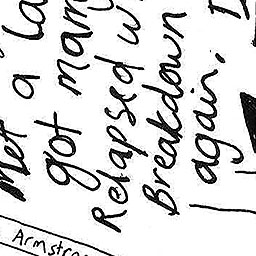 Met a la
got mar
Relapsed w
Breakdown
again. I
Armstro